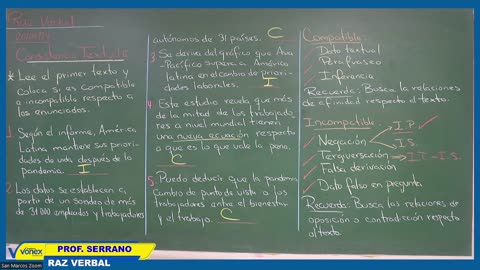 Raz Verbal
Consistencia Textual
* Lee el primer texto y
coloca si es Compatible
o incompatible respecto a
los enunciados.
1 Según el informe, América
Latina mantuvo sus priori-
dades de vida después de la
pandemia.
I
2 Los datos se establecen a
partir de un sondeo de más
de 31 000 empleados y trabajadores
autónomos de 31 países.
C
3 Se deriva del gráfico que Asia
-Pacífico supera a América
latina en el cambio de priori-
dades laborales.
I
4 Este estudio revela que más
de la mitad de los trabajado-
res a nivel mundial tienen
una nueva ecuación respecto
a qué es lo que vale la pena.
C
5 Puedo deducir que la pandemia
cambió de punto de vista a los
trabajadores entre el bienestar
y el trabajo.
C
Compatible:
Dato textual
Parafraseo
Inferencia
Recuerda: Busca la relaciones
de afinidad respecto al texto.
Incompatible:
I.P.
Negación
I.S.
Tergiversación → I.T - I.S.
Falsa derivación
Dato falso en pregunta
Recuerda: Busca las relaciones de
oposición o contradicción respecto
al texto.
Vonex
PROF. SERRANO
RAZ VERBAL
San Marcos Zoom